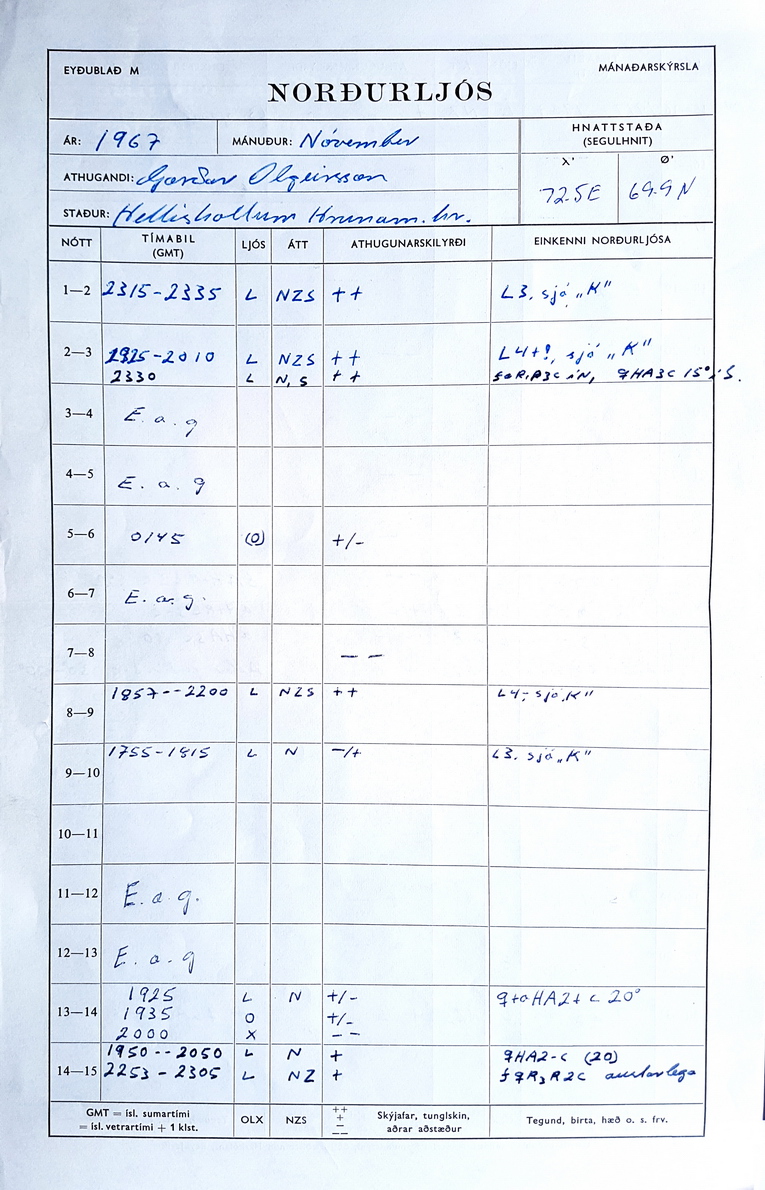 EYÐUBLAÐ M
MÁNAÐARSKÝRSLA
NORÐURLJÓS
ÁR: 1967 MÁNUÐUR: Nóvember
HNATTSTAÐA
(SEGULHNIT)
ATHUGANDI: Garðar Olgeirsson
λ' Ø'
72.5E 69.9N
STAÐUR: Hellisholtum Hrunam.hr.
NÓTT TÍMABIL (GMT) LJÓS ÁTT ATHUGUNARSKILYRÐI EINKENNI NORÐURLJÓSA
1—2 2315-2335 L NZS ++ L3. sjá „K"
2—3 1925-2010 L NZS ++ L4+!, sjá „K"
2330 L N, S ++ 15°
3—4 E.a.g
4—5 E.a.g
5—6 0145 (O) +/-
6—7 E.a.g.
7—8 — —
8—9 1857--2200 L NZS ++ L4- sjá „K"
9—10 1755-1815 L N -/+ L3. sjá „K"
10—11
11—12 E.a.g.
12—13 E.a.g
13—14 1925 L N +/- HA2+ c 20°
1935 O +/-
2000 X --
14—15 1950--2050 L N + qHA2-c (20)
2253-2305 L NZ + fqR3R2C austarlega
GMT = ísl. sumartími
= ísl. vetrartími + 1 klst.
OLX NZS
++
+
—
——
Skýjafar, tunglskin,
aðrar aðstæður
Tegund, birta, hæð o. s. frv.